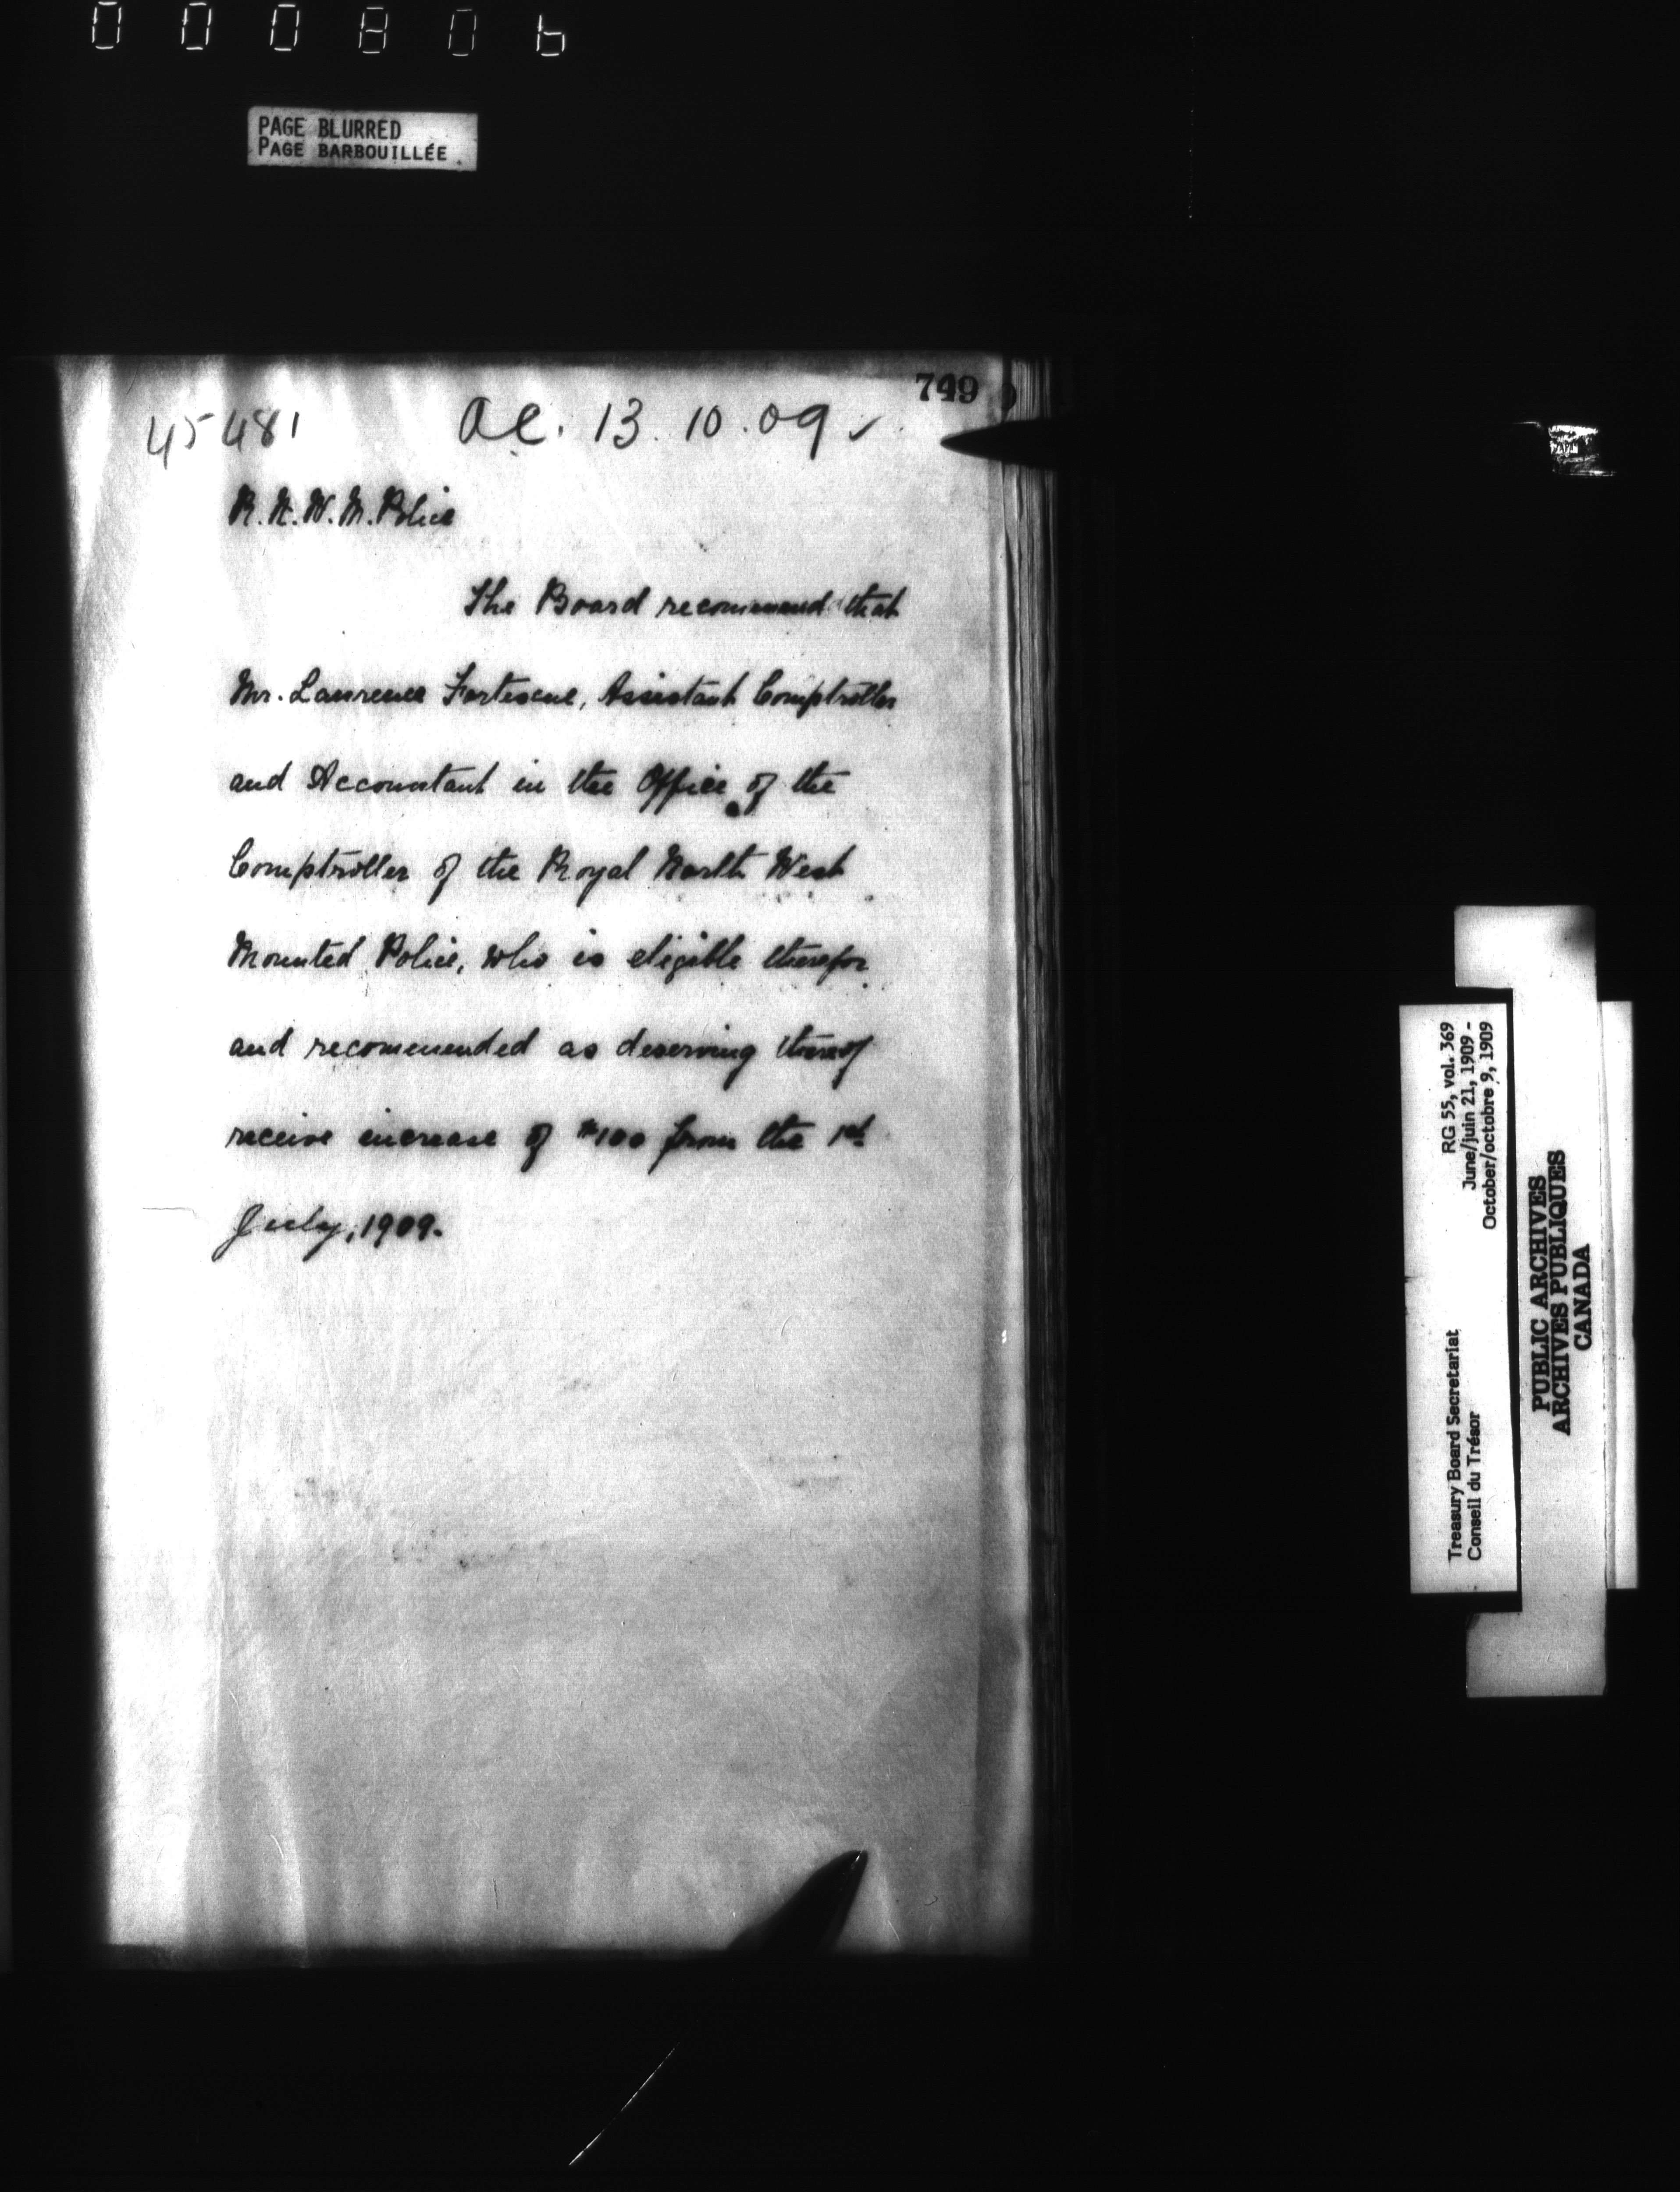 000806
PAGE BLURRED
PAGE BARBOUILLÉE
749
45481
OC. 13.10.09 ✓
R.N.W.M. Police
The Board recommend that
Mr. Laurence Fortescue, Assistant Comptroller
and Accountant in the Office of the
Comptroller of the Royal North West
Mounted Police, who is eligible therefor
and recommended as deserving thereof
receive increase of $100 from the 1st
July, 1909.
RG 55, vol. 369
June/juin 21, 1909 -
October/octobre 9, 1909
Treasury Board Secretariat
Conseil du Trésor
PUBLIC ARCHIVES
ARCHIVES PUBLIQUES
CANADA